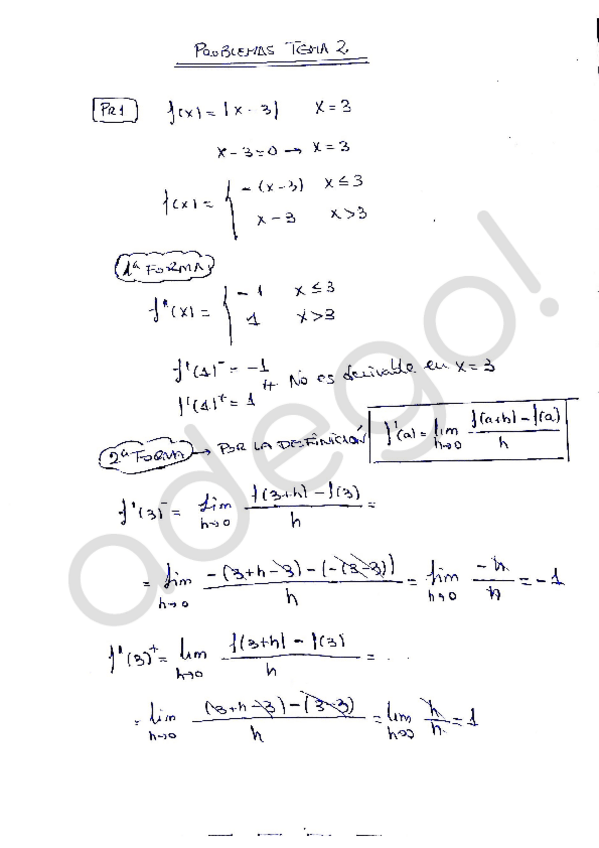 PROBLEMAS TEMA 2.
PR1 f(x) = |x - 3| x = 3
x - 3 = 0 → x = 3
f(x) = { -(x-3) x ≤ 3
x - 3 x > 3
1ª FORMA
f'(x) = { -1 x ≤ 3
1 x > 3
f'(1)⁻ = -1
≠ No es derivable en x = 3
f'(1)⁺ = 1
2ª FORMA → POR LA DEFINICIÓN f'(a) = lim h→0 (f(a+h) - f(a))/h
f'(3)⁻ = lim h→0 (f(3+h) - f(3))/h =
= lim h→0 (-(3+h-3) - (-(3-3)))/h = lim h→0 -h/h = -1
f'(3)⁺ = lim h→0 (f(3+h) - f(3))/h = ..
= lim h→0 ((3+h-3) - (3-3))/h = lim h→0 h/h = 1
adego!